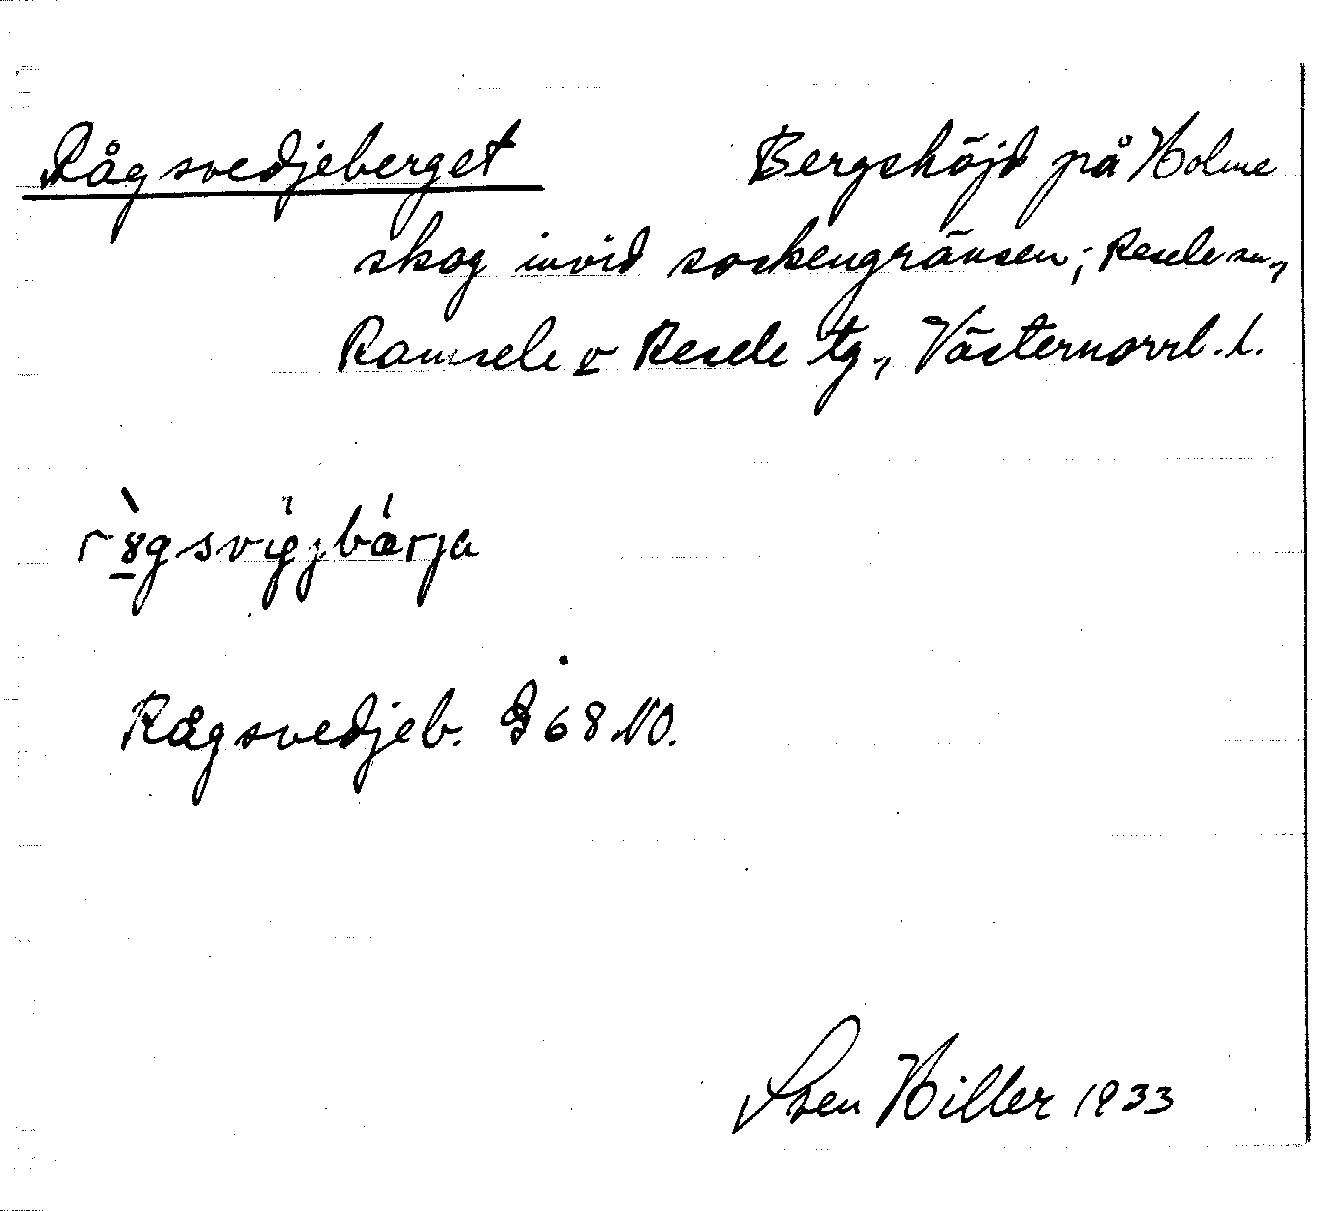 Rågsvedjeberget Bergshöjd på Holme
skog invid sockengränsen; Resele sn.,
Ramsele o Resele tg., Västernorrl. l.
Rågsvedjeb. G 68 NO.
Sven Hiller 1933